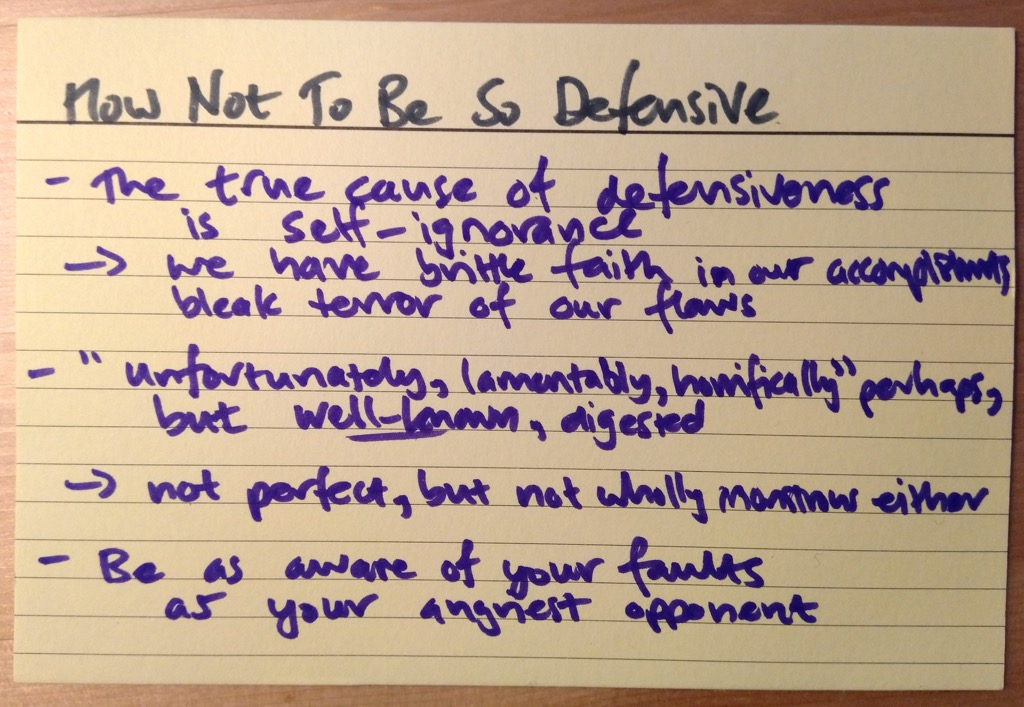 How Not To Be So Defensive
- The true cause of defensiveness
is self-ignorance
→ we have brittle faith in our accomplishments,
bleak terror of our flaws
- "unfortunately, lamentably, horrifically" perhaps,
but well-known, digested
→ not perfect, but not wholly monstrous either
- Be as aware of your faults
as your angriest opponent